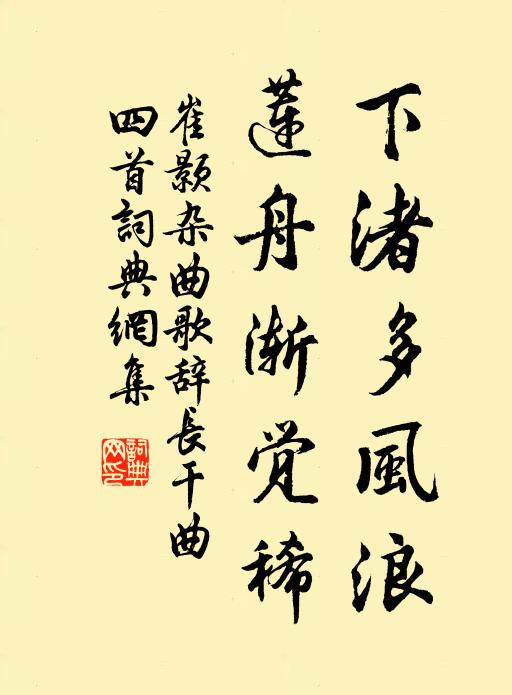 下渚多風浪
蓮舟漸覚稀
崔顥杂曲歌辞長干曲
四首詞典網集
詞典
网印